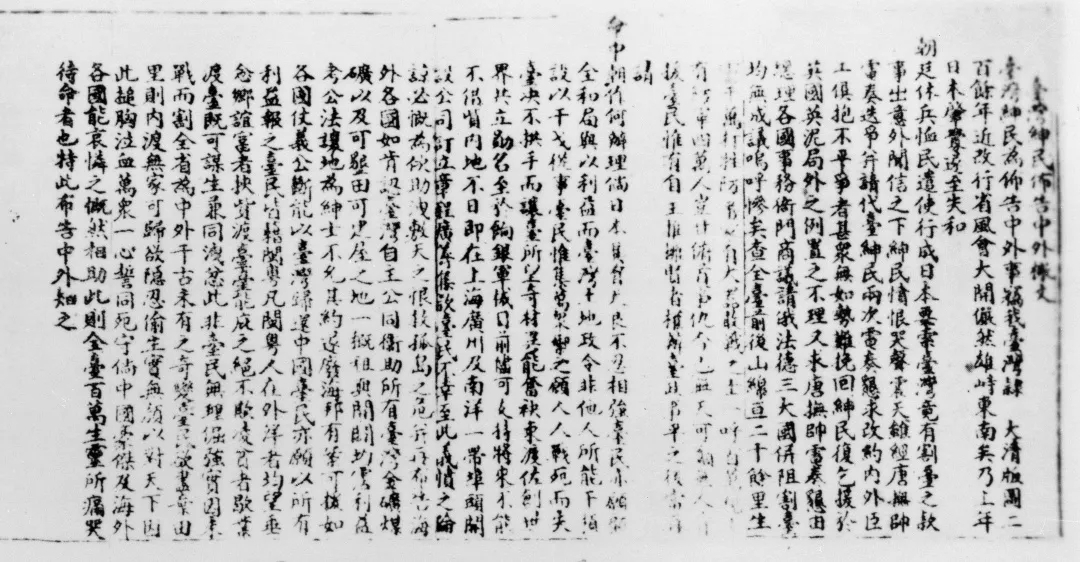 臺灣紳民佈告中外檄文
臺灣紳民為佈告中外事竊我臺灣隸　大清版圖二
百餘年近改行省風會大開儼然雄峙東南矣乃上年
日本肇釁遂至失和
朝廷休兵恤民遣使行成日本要索臺灣竟有割臺之款
事出意外聞信之下紳民憤恨哭聲震天雖經唐撫帥
電奏迭爭并請代臺紳民兩次電奏懇求改約內外臣
工俱抱不平爭者甚眾無如勢難挽回紳民復乞援於
英國英泥局外之例置之不理又求唐撫帥電奏懇由
總理各國事務衙門商議請俄法德三大國併阻割臺
均無成議嗚呼慘矣查全臺前後山綿亘二十餘里生
萬打牲防
有萬人豈甘俯首事仇今已無天可籲無人
援臺民惟有自主推擁賢者權攝臺政事平之後當再
請
命中朝作何辦理倘日本具有天良不忍相強臺民亦願
全和局與以利益而臺灣土地政令非他人所能干預
設以干戈從事臺民惟集萬眾禦之願人人戰死而失
臺決不拱手而讓臺所望奇材異能奮袂東渡佐創世
界共立勛名至於餉銀軍械目前儘可支持將來不能
不借貸內地不日即在上海廣州及南洋一帶埠頭開
設公司訂立章程廣籌臺民不幸至此義憤之倫
諒必慨為佽助洩敷天之恨救孤島之危并再布告海
外各國如肯認臺灣自主公同衛助所有臺灣金礦煤
礦以及可墾田可建屋之地一概租與開闢均霑利益
考公法讓地為紳士不允其約遂廢海邦有案可援如
各國仗義公斷能以臺灣歸還中國臺民亦願以所有
利益報之臺民皆籍閩粵凡閩粵人在外洋者均望垂
念鄉誼富者挾貲渡臺臺能庇之絕不欺凌貧者歇業
渡臺既可謀生兼同洩忿此非臺民無理倔強實因未
戰而割全省為中外千古未有之奇變臺民欲盡棄田
里則內渡無家可歸欲隱忍偷生實無顏以對天下因
此搥胸泣血萬眾一心誓同死守倘中國豪傑及海外
各國能哀憐之慨然相助此則全臺百萬生靈所痛哭
待命者也特此布告中外知之